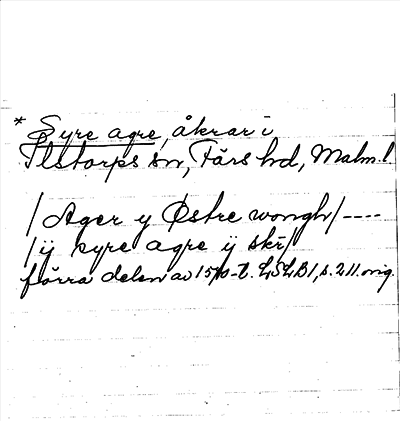 * Syre agre, åkrar i
Ilstorps sn, Färs hd, Malm. l.
/Ager y Østre wongh/ ----
/ij syre agre ij skr/
förra delen av 1570-t. LSLB1, s. 211. orig.